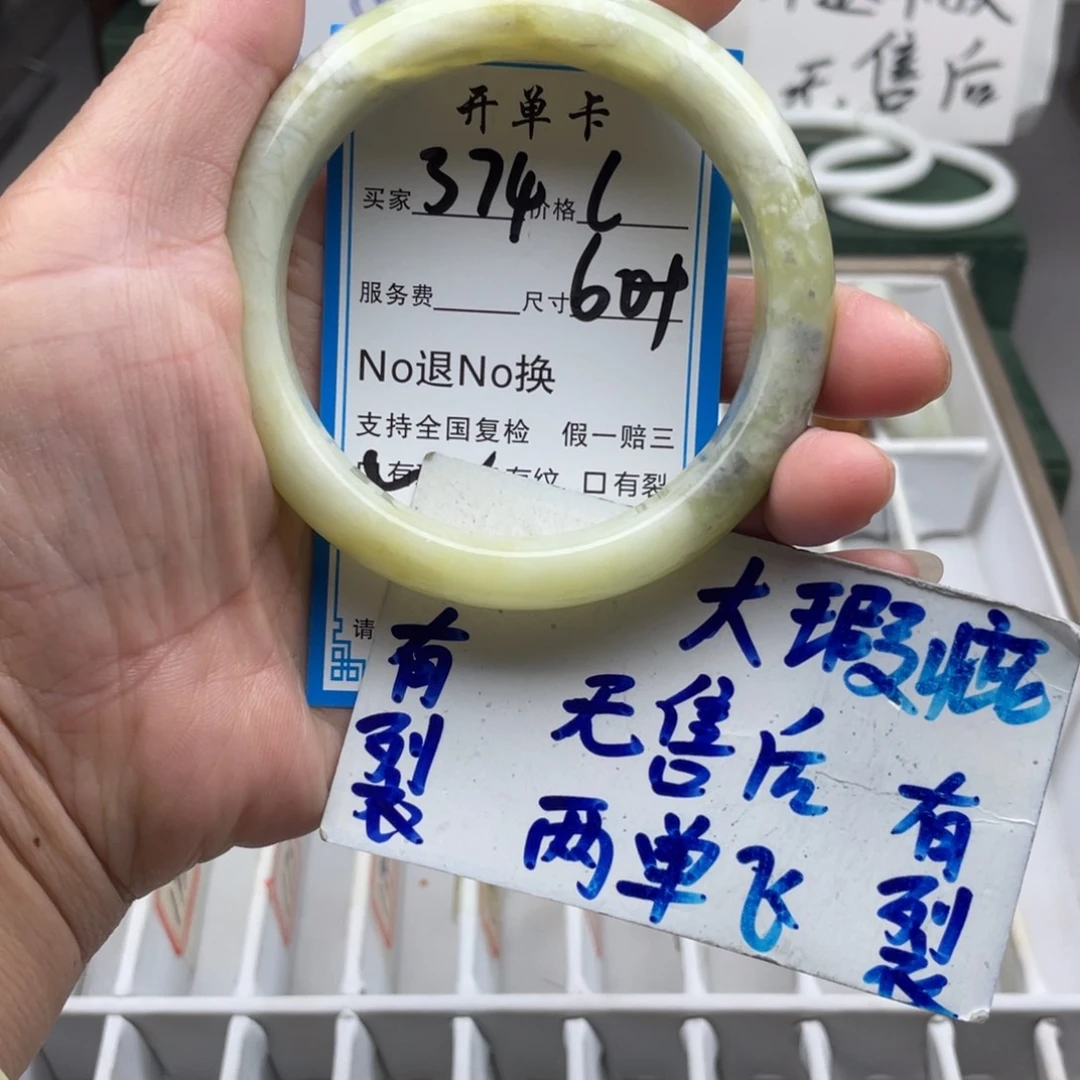 无售后
开单卡
买家 374 价格
服务费 尺寸 60+
No退No换
支持全国复检 假一赔三
有 有纹 口有裂
请
大瑕疵
无售后
两单飞
有裂
有裂